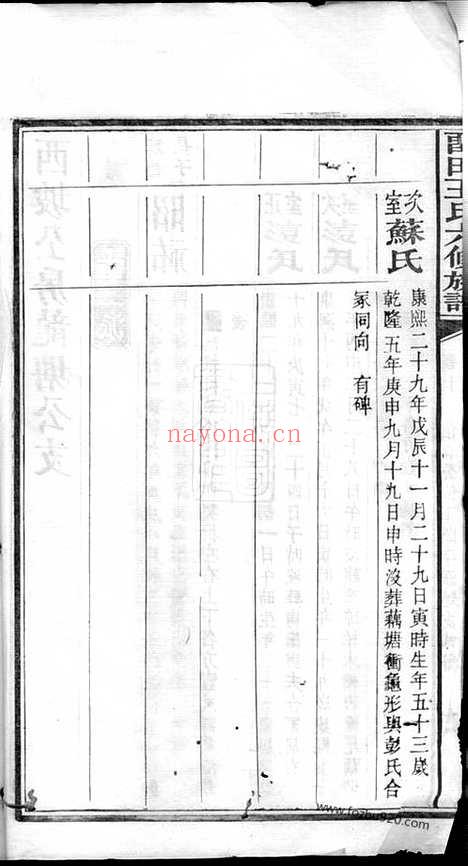 留田王氏六修族譜
次室蘇氏
康熙二十九年戊辰十一月二十九日寅時生年五十三歲
乾隆五年庚申九月十九日申時沒葬藕塘衝龜形與彭氏合
冢同向 有碑
nayona.cn
www.fozhu920.com